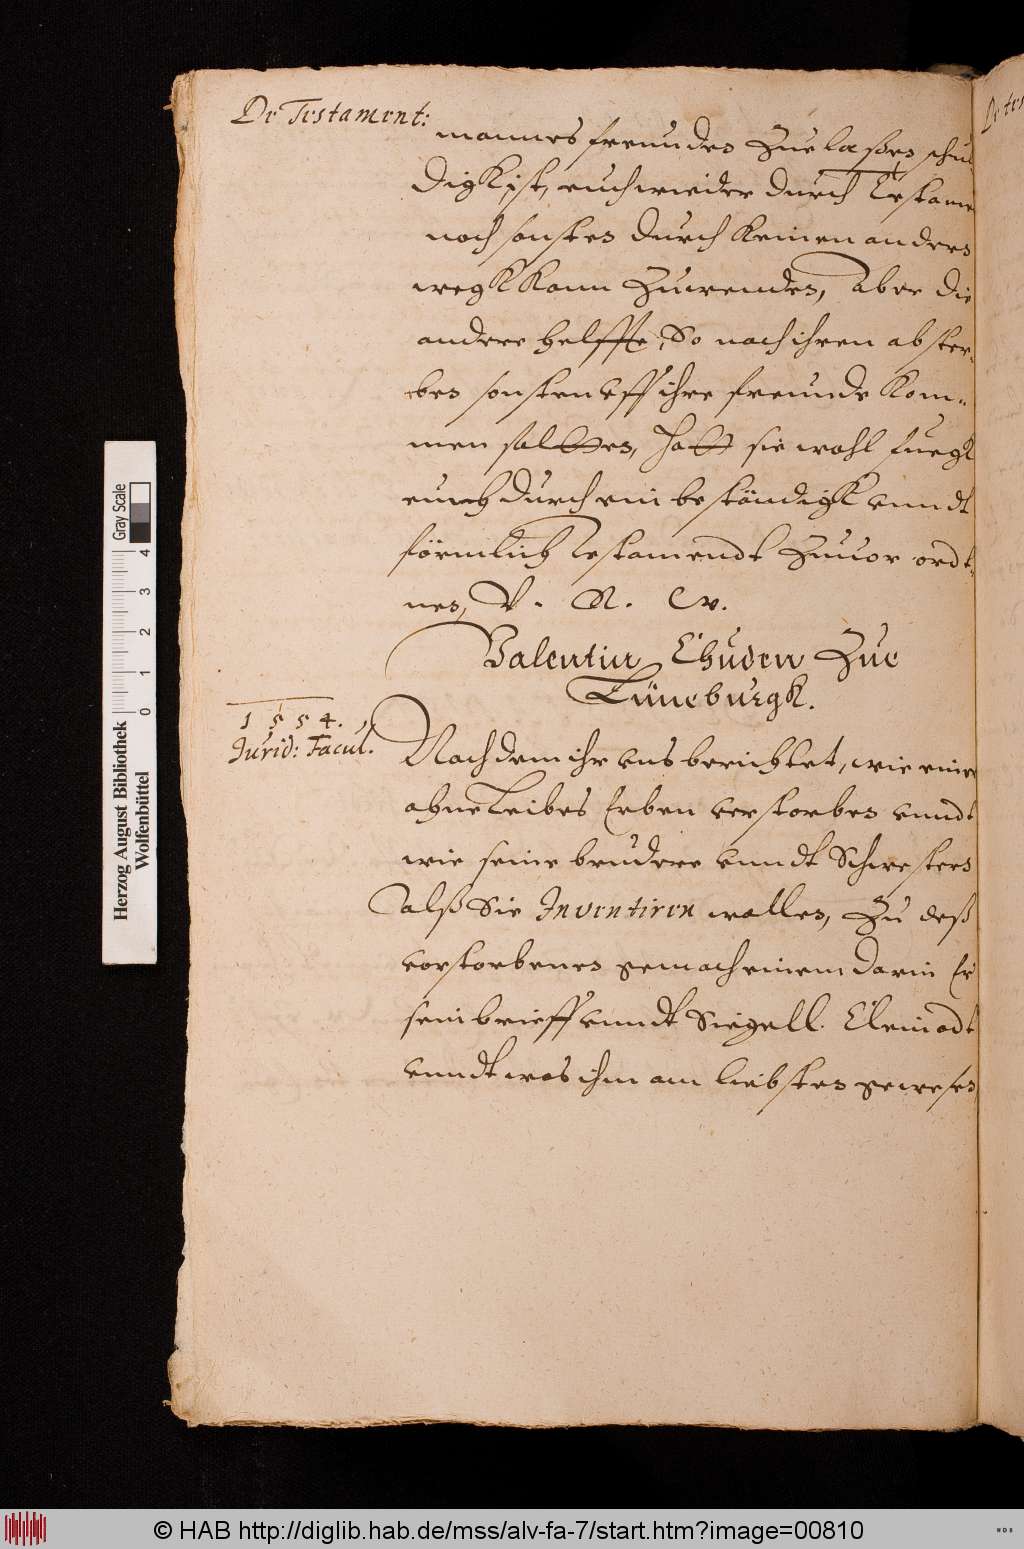 De Testament:
mannes freunden Zue laßen schul
digk ist, auch wieder durch Testame
noch sonsten durch keinen andern
wegk kann Zuwenden, Aber die
andere helffte, So nach ihren abster-
ben sonsten vff ihre freunde kom-
men solltten, hatt sie wohl fuegk
auch durch ein beständigk vnndt
förmlich Testamendt Zuuor ordt-
nen, V. R. W.
Valentin Chuden Zue
Lüneburgk.
1554.
Jurid: Facul.
Nachdem ihr vns berichtet, wie einer
ahne Leibes Erben verstorben vnndt
wie seine brudere vnndt Schwestern
alß Sie Inventiren wollen, Zu deß
vorstorbenen gemach einem darin Er
sein brieff vnndt Siegell. Cleinodt
vnndt was ihm am liebsten gewesen
Herzog August Bibliothek
Wolfenbüttel
Gray Scale
0 1 2 3 4
© HAB http://diglib.hab.de/mss/alv-fa-7/start.htm?image=00810